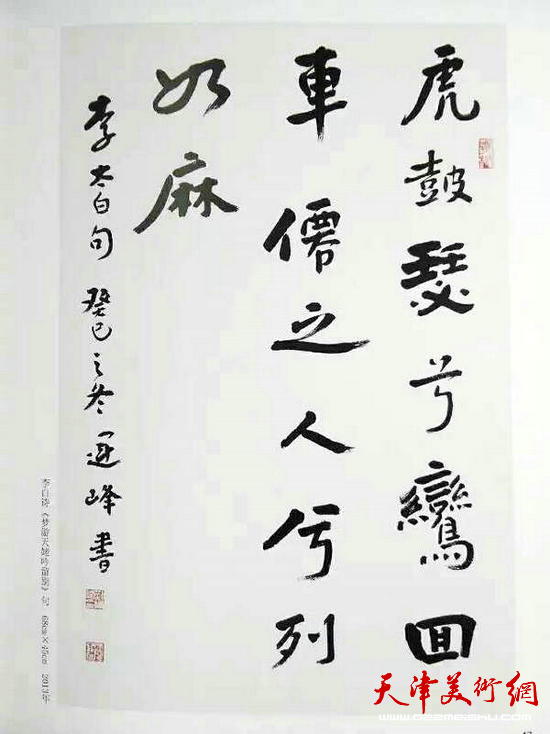 虎鼓瑟兮鸞回
車僊之人兮列
如麻
李太白句 癸巳之冬 運峰書
李白诗《梦游天姥吟留别》句 68cm×45cm 2013年
天津美術網